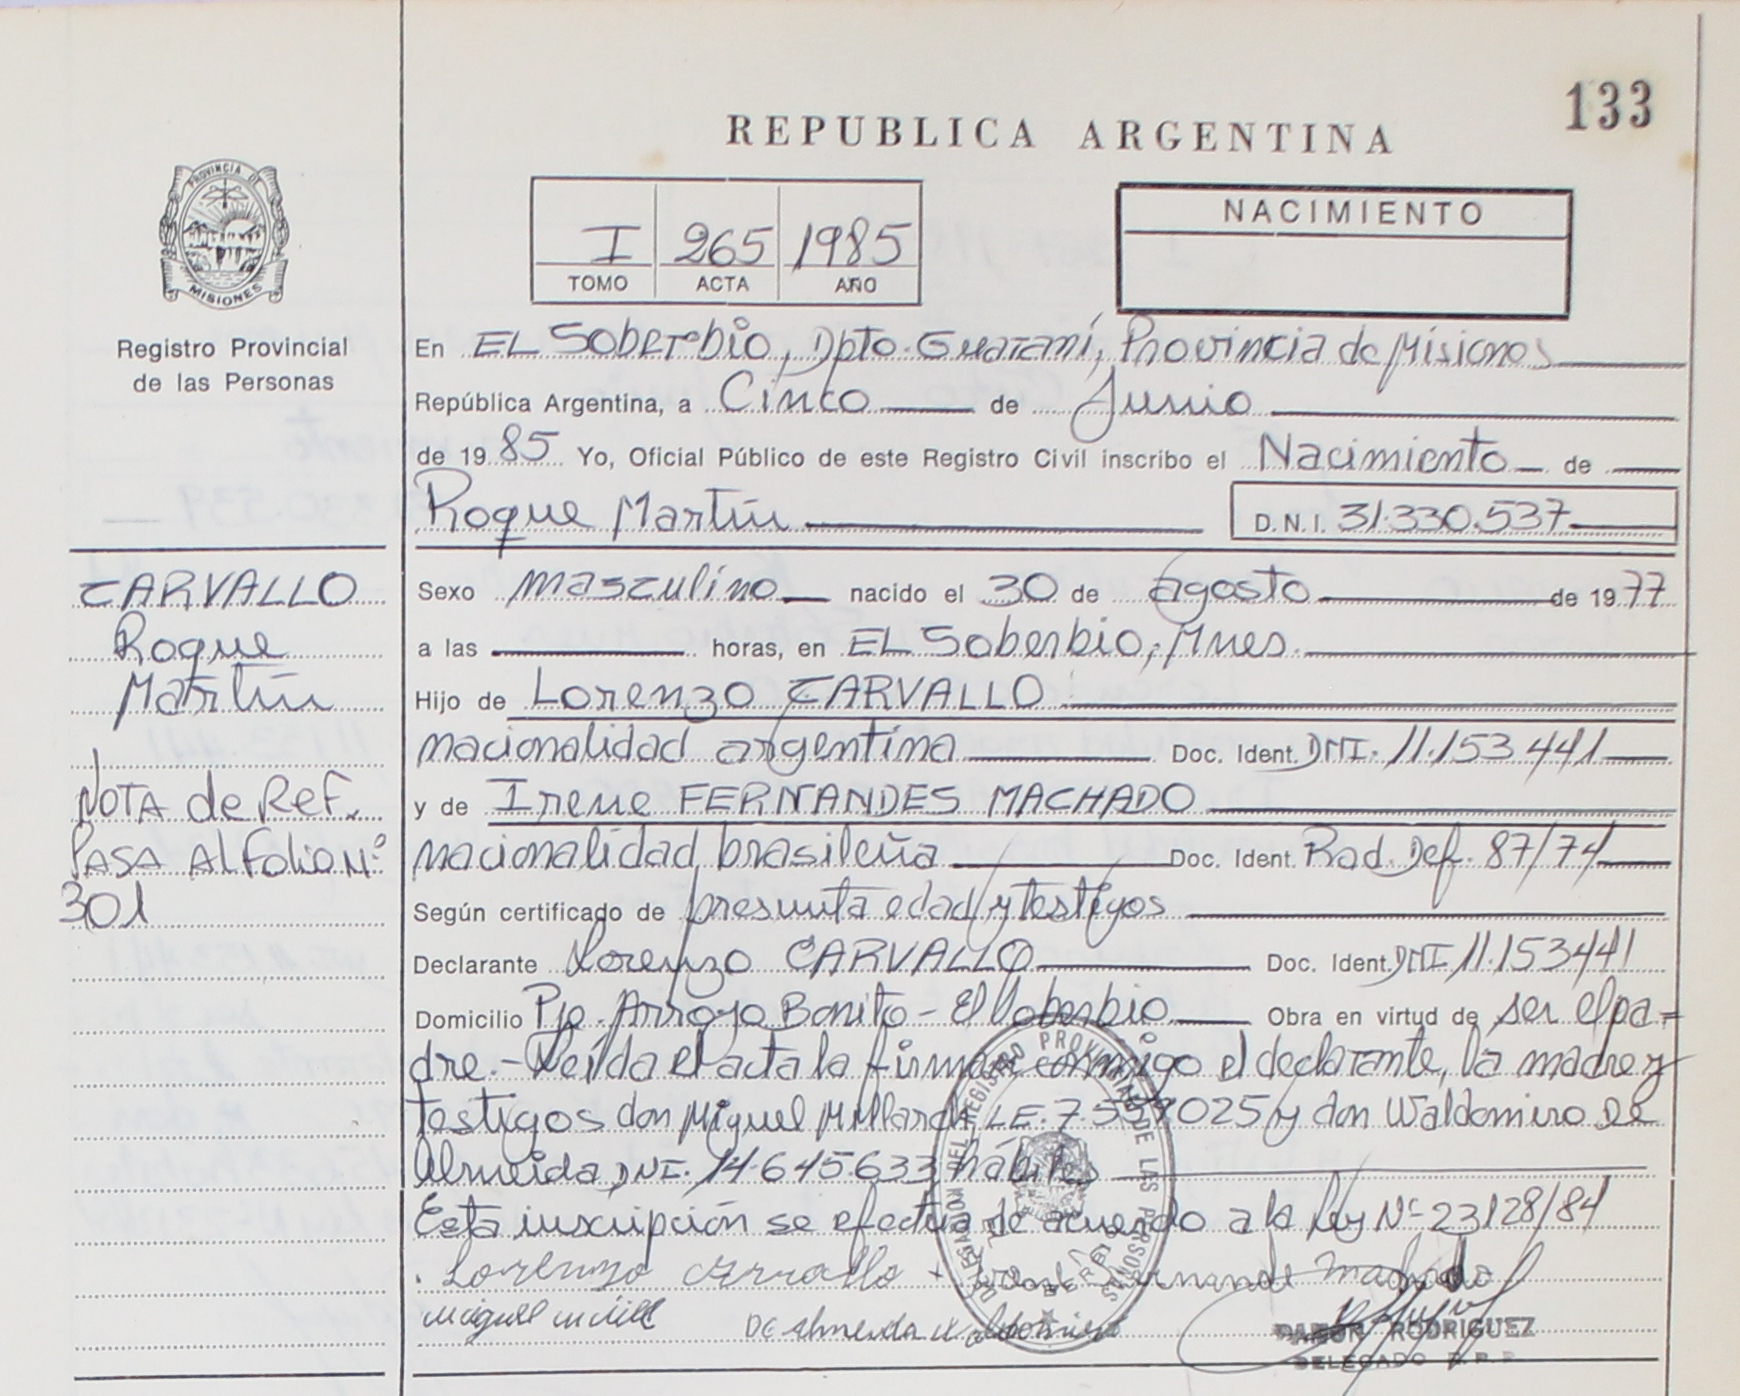 133
REPUBLICA ARGENTINA
PROVINCIA DE
MISIONES
Registro Provincial
de las Personas
I 265 1985
TOMO ACTA AÑO
NACIMIENTO
En EL Soberbio, Dpto. Guaraní, Provincia de Misiones
República Argentina, a Cinco de Junio
de 1985 Yo, Oficial Público de este Registro Civil inscribo el Nacimiento de
Roque Martín D.N.I. 31.330.537
CARVALLO
Roque
Martín
NOTA de Ref.
PASA Al Folio Nº
301
Sexo masculino nacido el 30 de agosto de 1977
a las horas, en EL Soberbio, Mnes.
Hijo de Lorenzo CARVALLO
nacionalidad argentina Doc. Ident. DNI. 11.153.441
y de Irene FERNANDES MACHADO
nacionalidad brasileña Doc. Ident. Rad. Def. 87/74
Según certificado de presunta edad y testigos
Declarante Lorenzo CARVALLO Doc. Ident. DNI 11.153441
Domicilio Pje. Arroyo Bonito - El Soberbio Obra en virtud de ser el pa=
dre.- Leída el acta la firman conmigo el declarante, la madre y
testigos don Miguel LE. 7. 025 y don Waldomiro De
Almeida, DNI. 14.645.633, hábiles
Esta inscripción se efectúa de acuerdo a la ley Nº 23128/84
Lorenzo carvallo Machado
miguel De Almeida
RODRIGUEZ
DELEGADO R.P.P.
DELEGACION DEL REGISTRO PROVINCIAL DE LAS PERSONAS